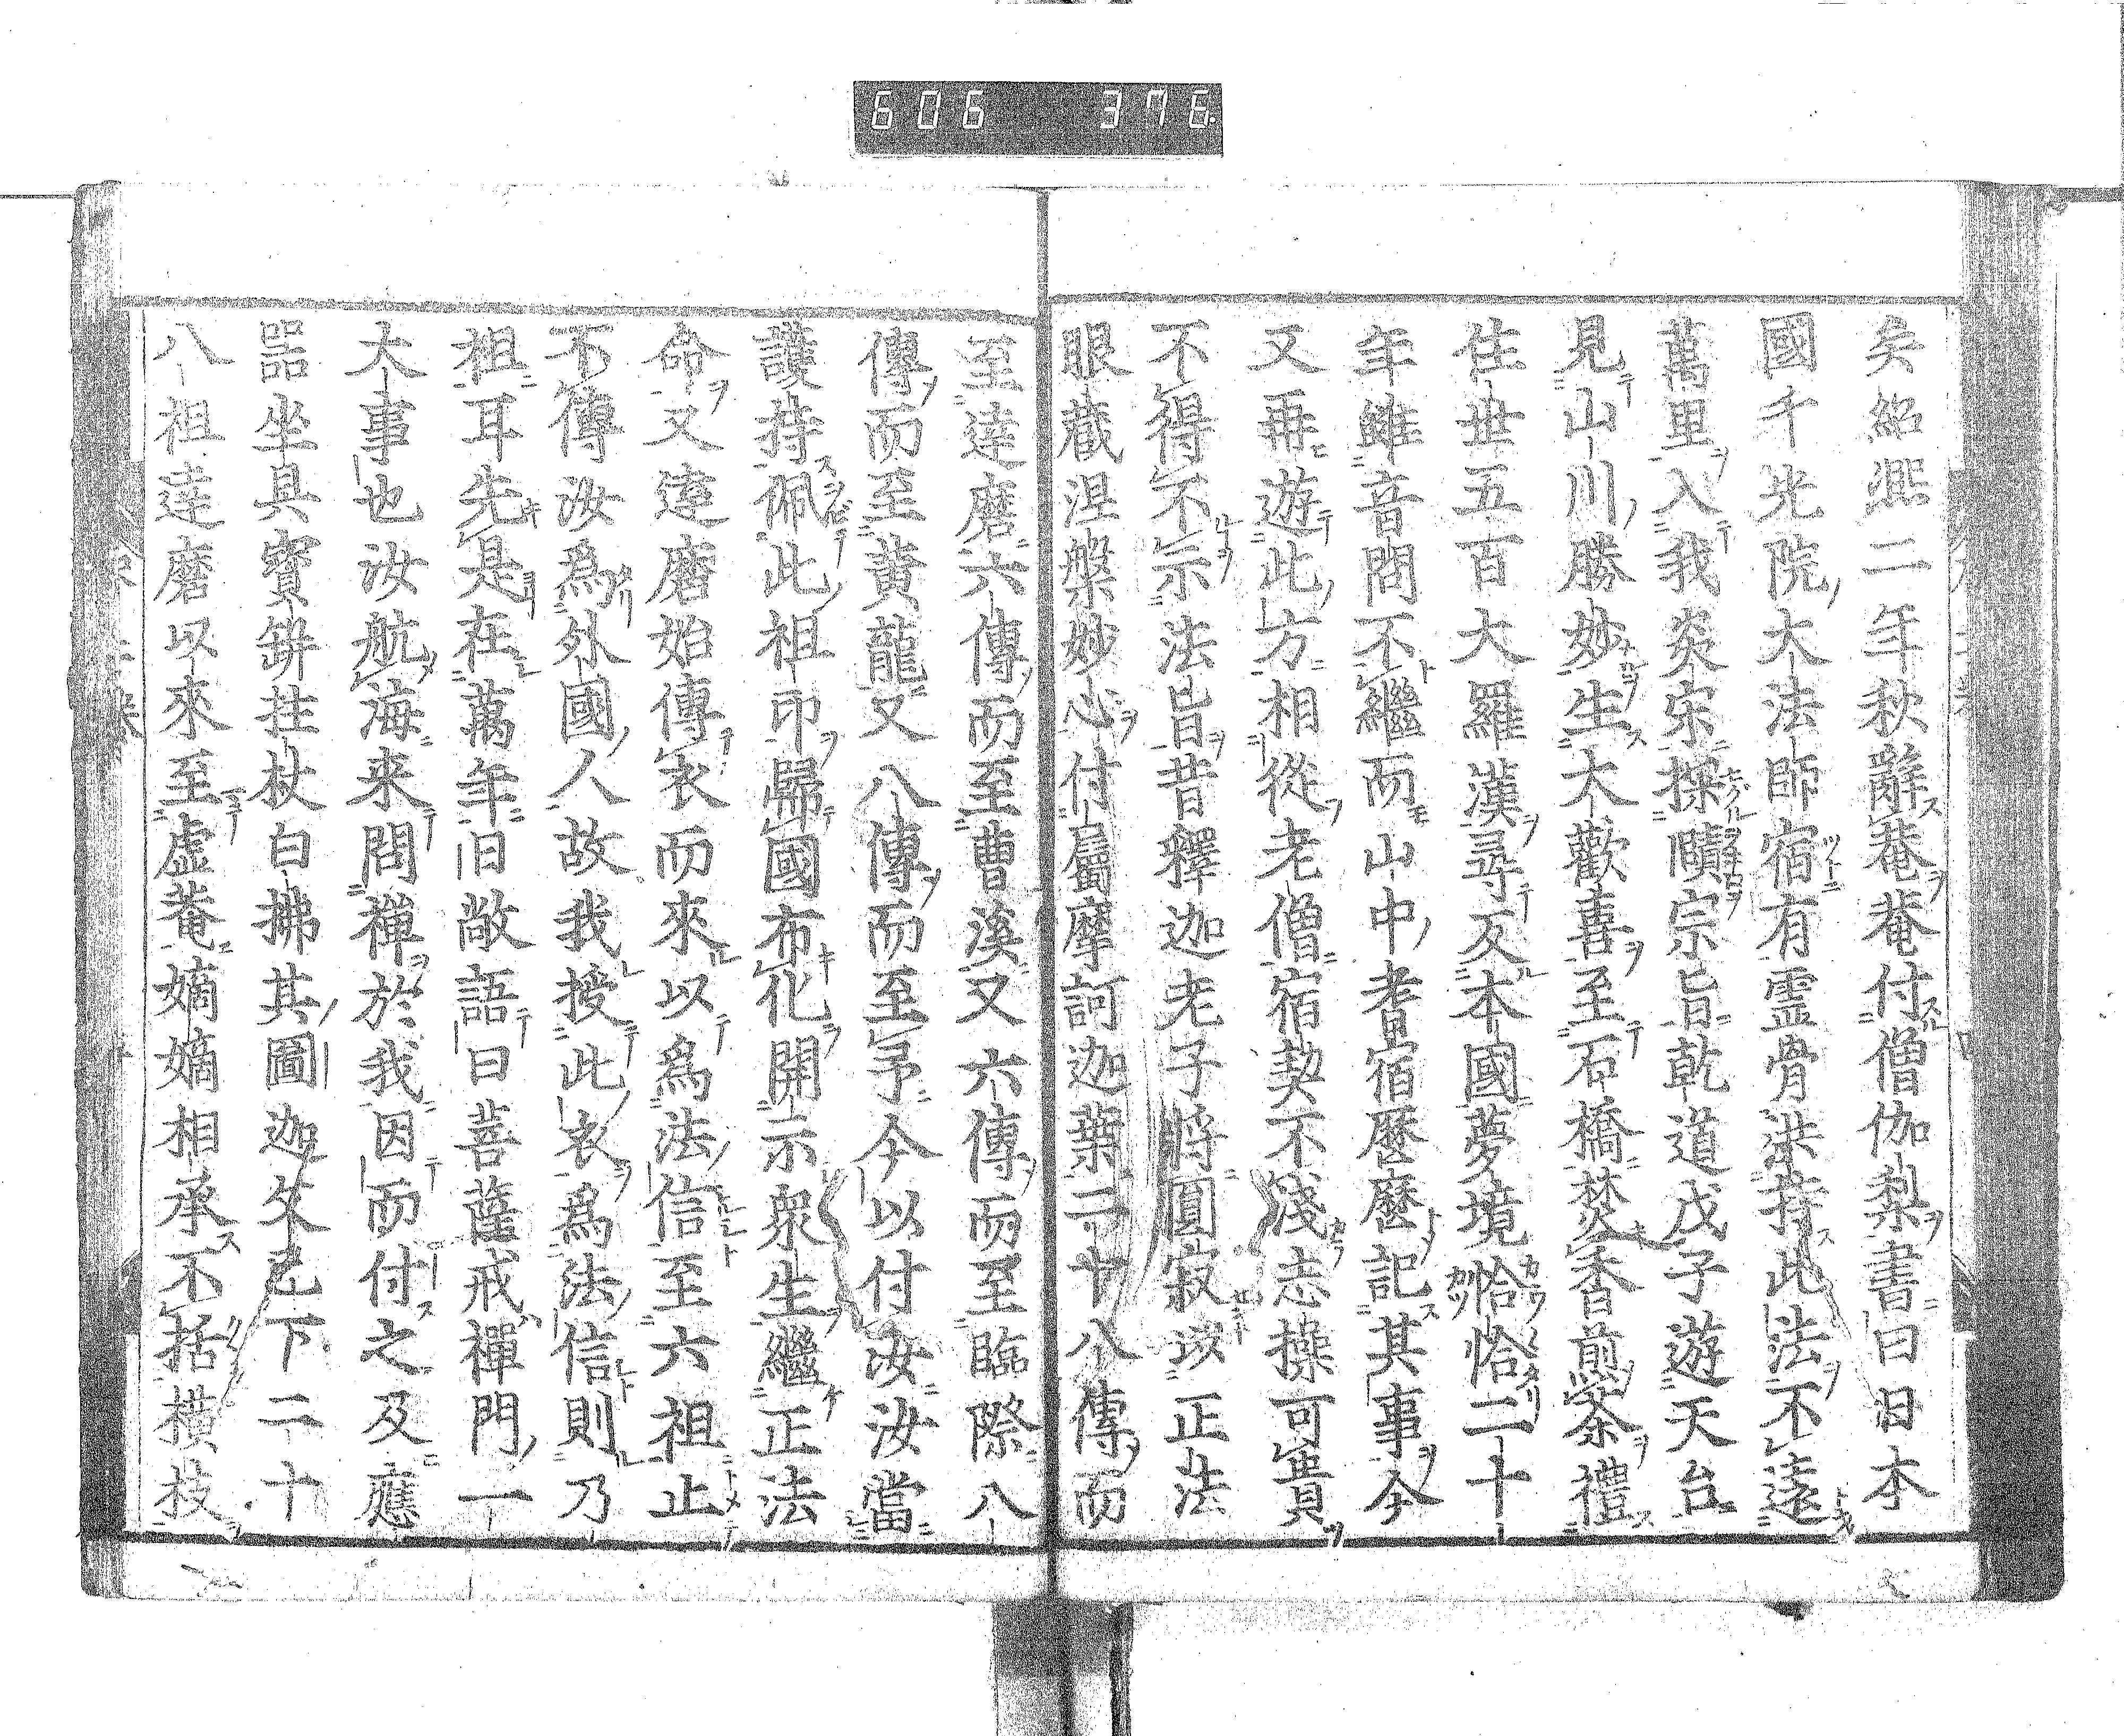 606 376
矣紹熙二年秋辭菴菴付僧伽梨書曰日本
國千光院大法師宿有霊骨洪持此法不遠
萬里入我炎宋探賾宗旨乾道戊子遊天台
見山川勝妙生大歡喜至石橋焚香煎茶禮
住世五百大羅漢尋反本國夢境恰恰二十
年雖音問不繼而山中耆宿歷歷記其事今
又再遊此方相從老僧宿契不淺志操可貴
不得不示法旨昔釋迦老子將圓寂以正法
眼藏涅槃妙心付屬摩訶迦葉二十八傳而
至達磨六傳而至曹溪又六傳而至臨際八
傳而至黄龍又八傳而至予今以付汝汝當
護持佩此祖印歸國布化開示衆生繼正法
命又達磨始傳衣而來以爲法信至六祖止
不傳汝爲外國人故我授此衣爲法信則乃
祖耳先是在萬年旧敞語曰菩薩戒禅門一
大事也汝航海来問禅於我因而付之及應
器坐具寳缾拄杖白拂其圖迦文已下二十
八祖達磨以來至虚菴嫡嫡相承不括横枝